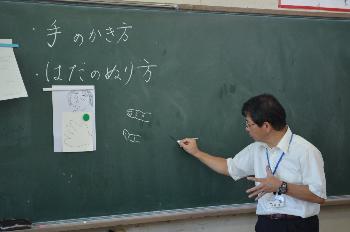 ・手のかき方
・はだのぬり方